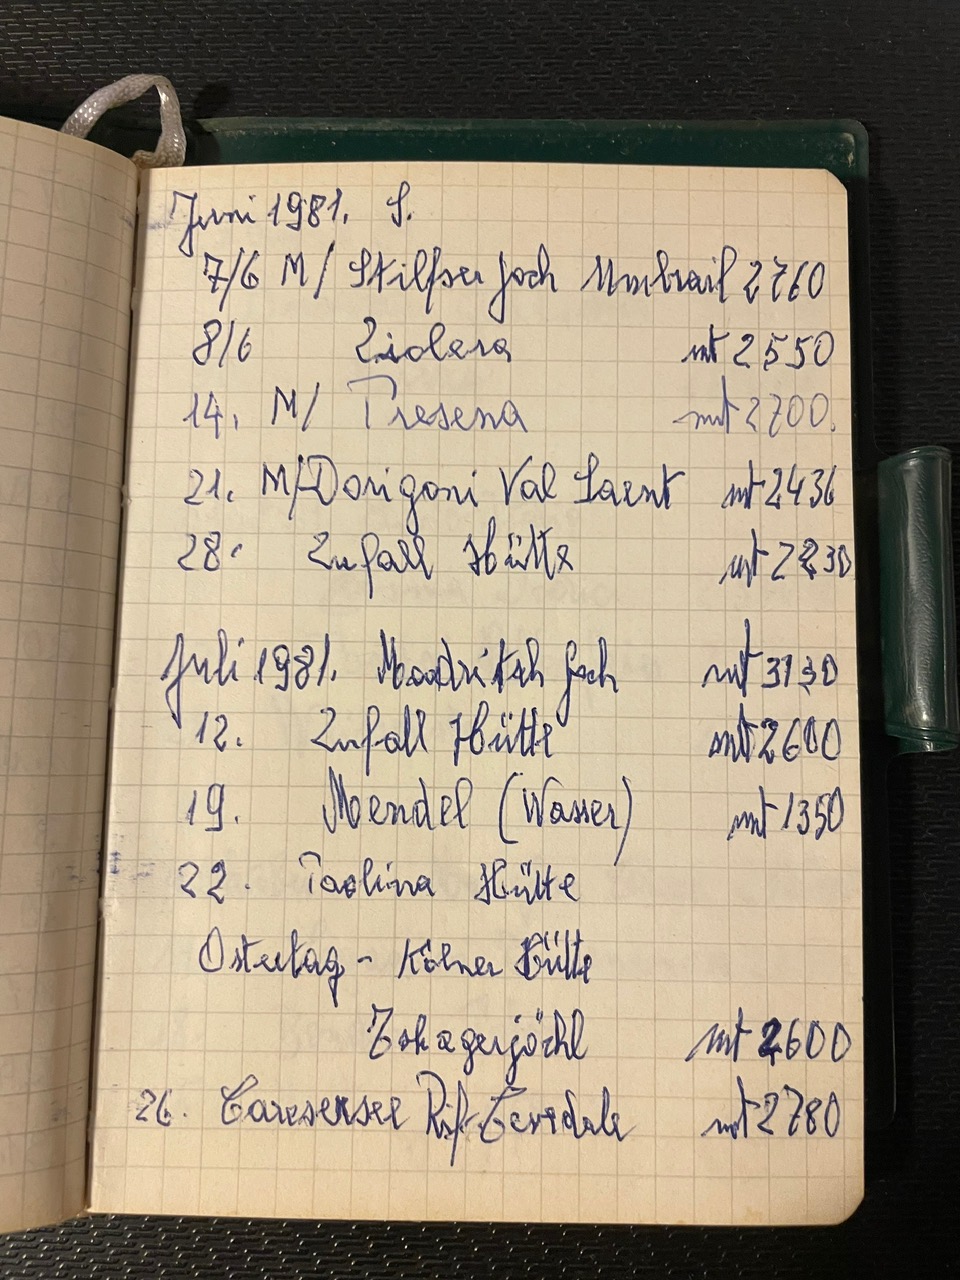 Juni 1981. S.
7/6 M/ Stilfser Joch Umbrail 2760
8/6 Ziolera mt 2550
14. M/ Presena mt 2700.
21. M/ Dorigoni Val Saent mt 2436
28. Zufall Hütte mt 2230
Juli 1981. Madritsch Joch mt 3130
12. Zufall Hütte mt 2600
19. Mendel (Wasser) mt 1350
22. Paolina Hütte
Ostertag - Kölner Hütte
Tschagerjöchl mt 2600
26. Caresersee Rif. mt 2780